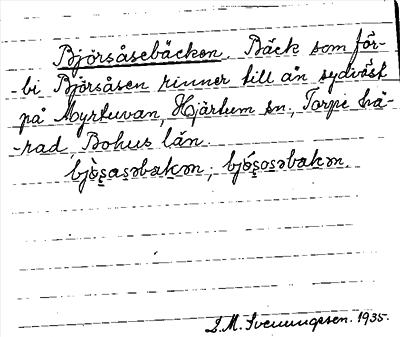 Björsåsebäcken. Bäck som för-
-bi Björsåsen rinner till ån sydväst
på Myrtuvan, Hjärtum sn, Torpe hä-
-rad, Bohus län.
bjò̤ṣasəbakən; bjó̤ṣosəbakən.
S.M. Svenungsson. 1935.